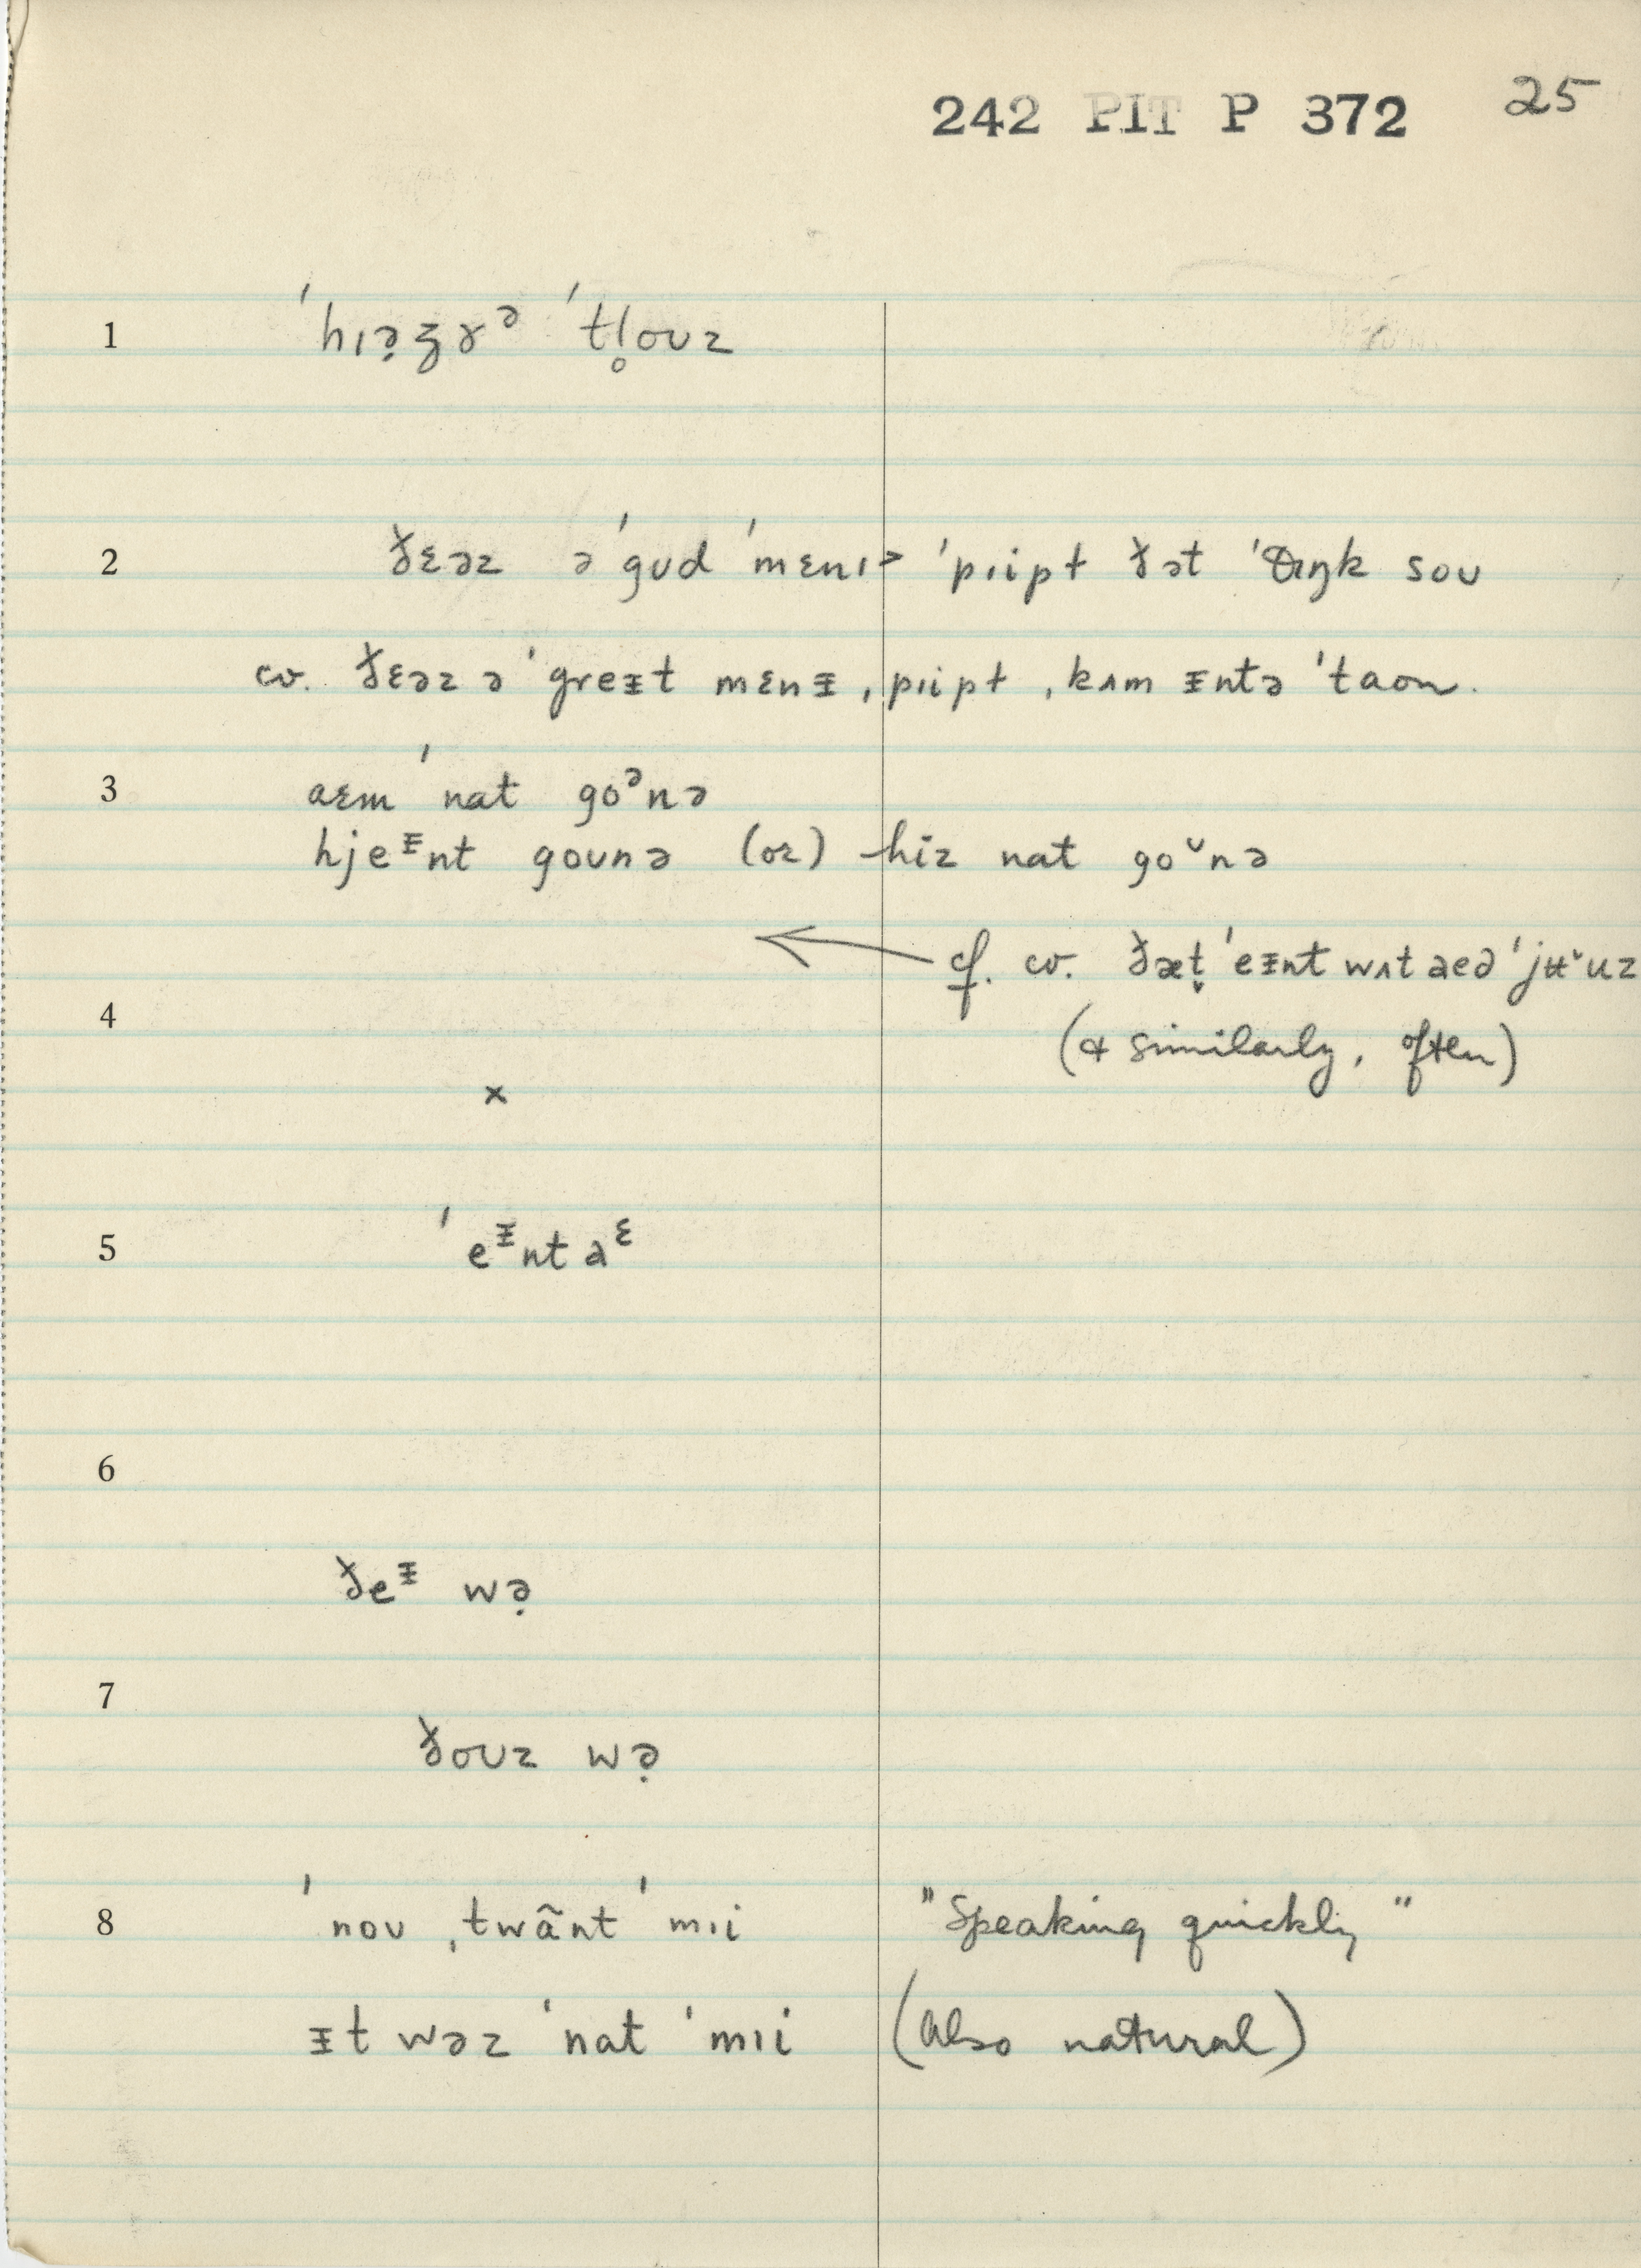 242 PIT P 372 25
1 ˈhɪə̣ʒɤᵊ ˈtl̥oʊz
2 ðɛəz əˈgʊd ˈmɛnɪ> ˈpɪipɫ ðət ˈθɪŋk soʊ
cv. ðɛəz ə ˈgreᵻt mɛnᵻ ˌpɪipɫ ˌkʌm ᵻntə ˈtaʊn.
3 aɛm ˈnat goᵊnə
hjeᵻnt goʊnə (or) hiz nat goᶷnə
cf. cv. ðæt̬ ˈeᵻnt wʌt aeə ˈjʉˇuz
4 (& similarly, often)
x
5 ˈeᵻnt aᵋ
6
ðeᵻ wə̣
7
ðoʊz wə̣
8 ˈnoʊ ˌtwãnt ˈmɪi "Speaking quickly"
ᵻt wəz ˈnat ˈmɪi (Also natural)